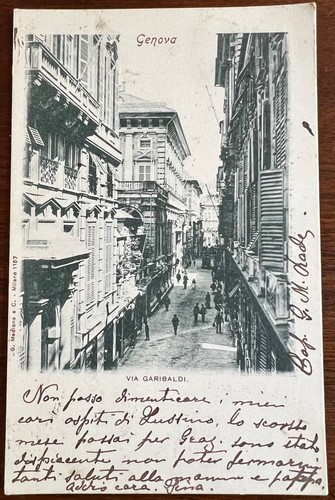 Genova
G. Modiano e C. - Milano 1157
VIA GARIBALDI.
Cap. G. M.
Non posso dimenticare, i miei
cari ospiti di Lussino, lo scorso
mese passai per Graz, sono stato
dispiacente non poter fermarmi
tanti saluti alla mamma e pappà
addio cara